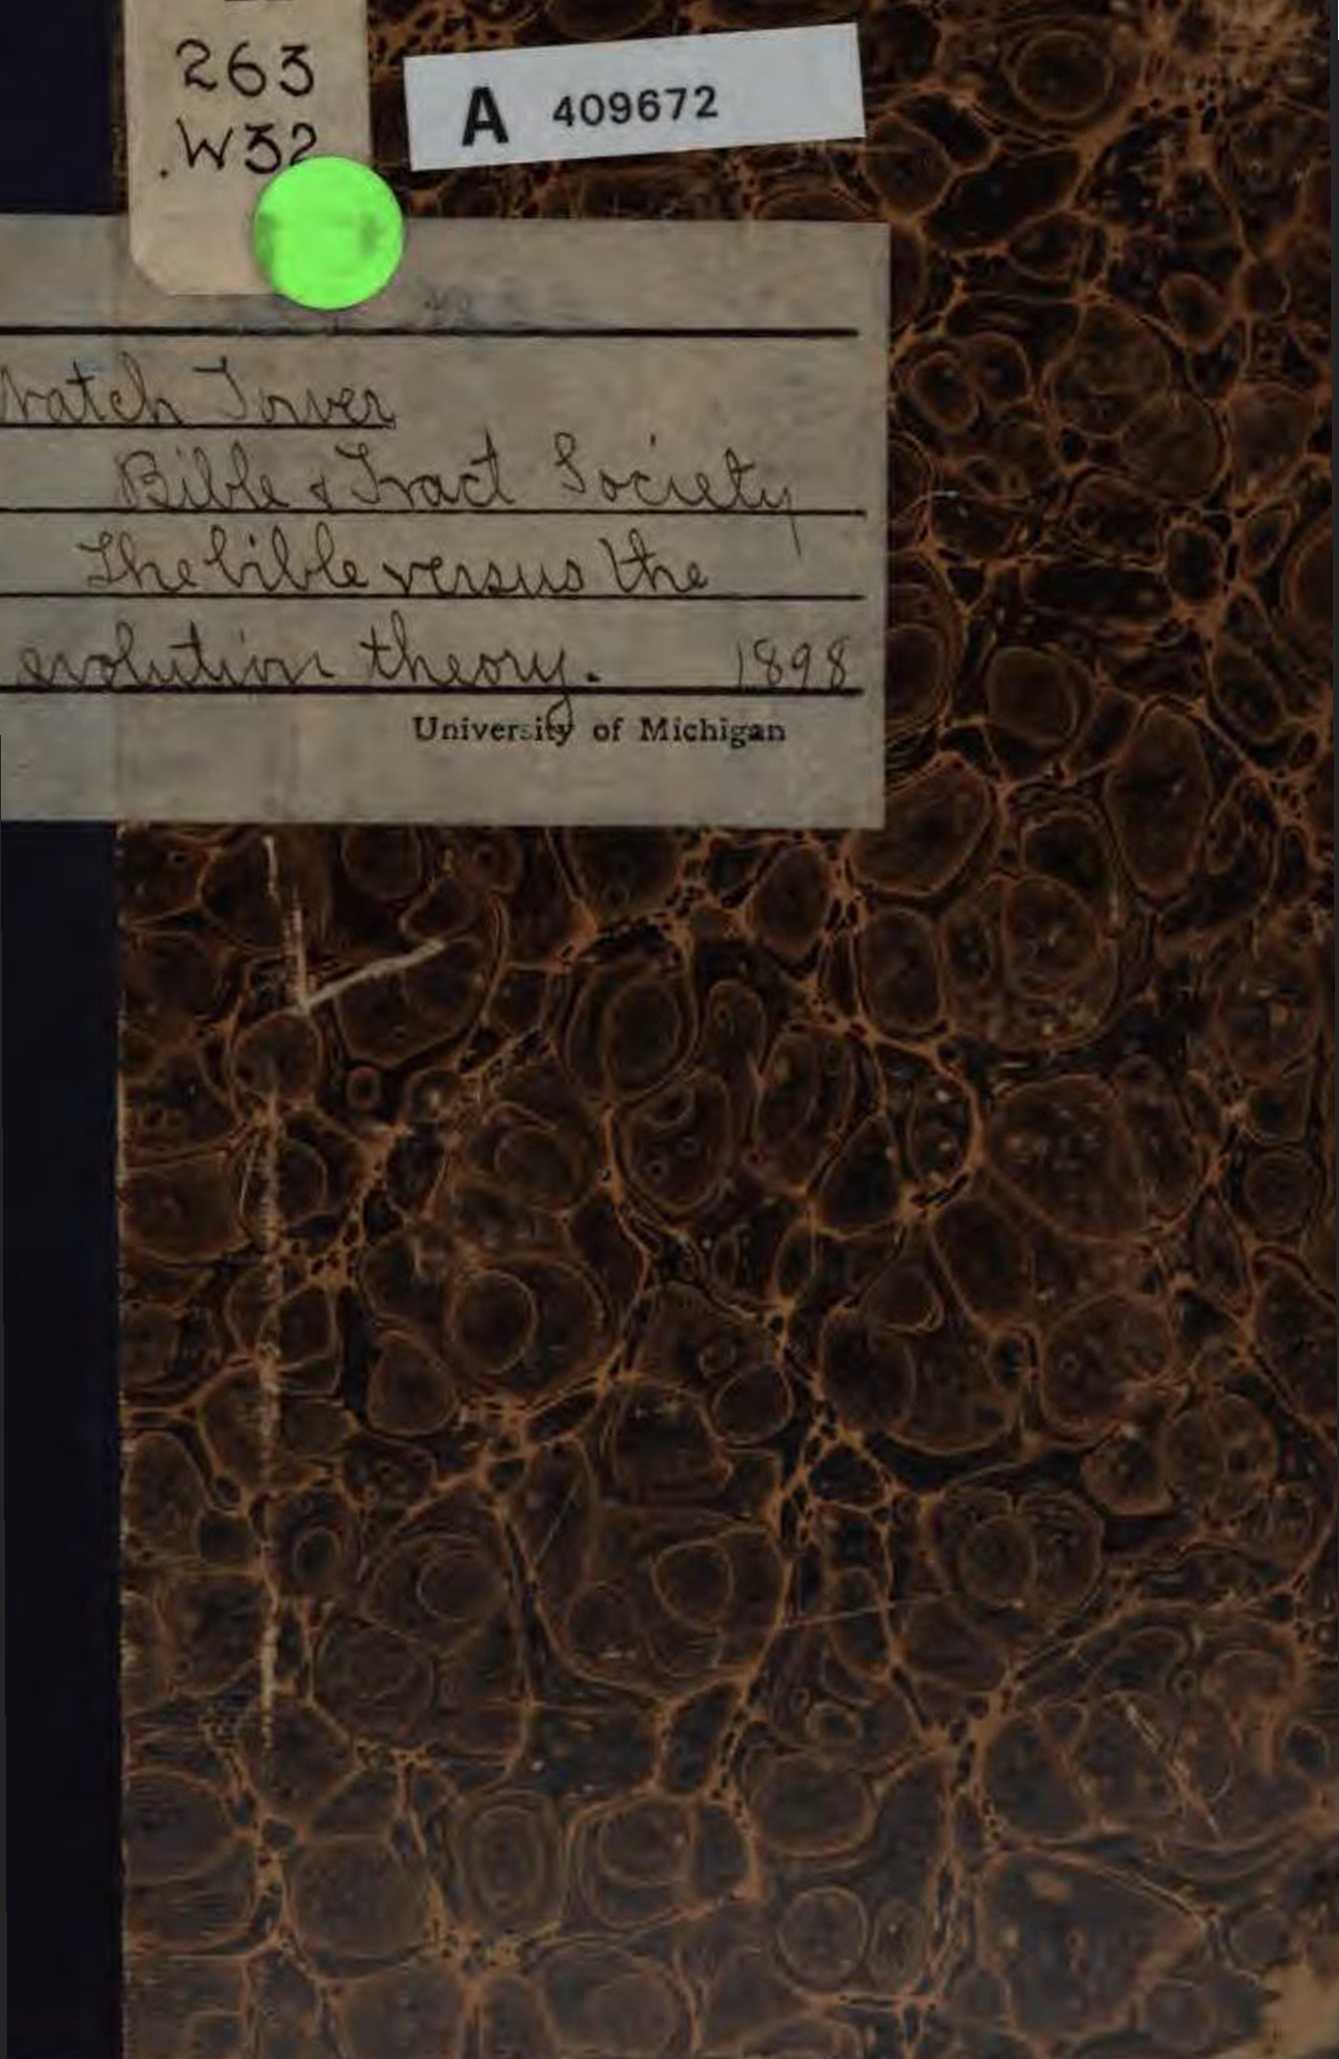 263
.W32
A 409672
Watch Tower
Bible & Tract Society
The bible versus the
evolution theory. 1898
University of Michigan